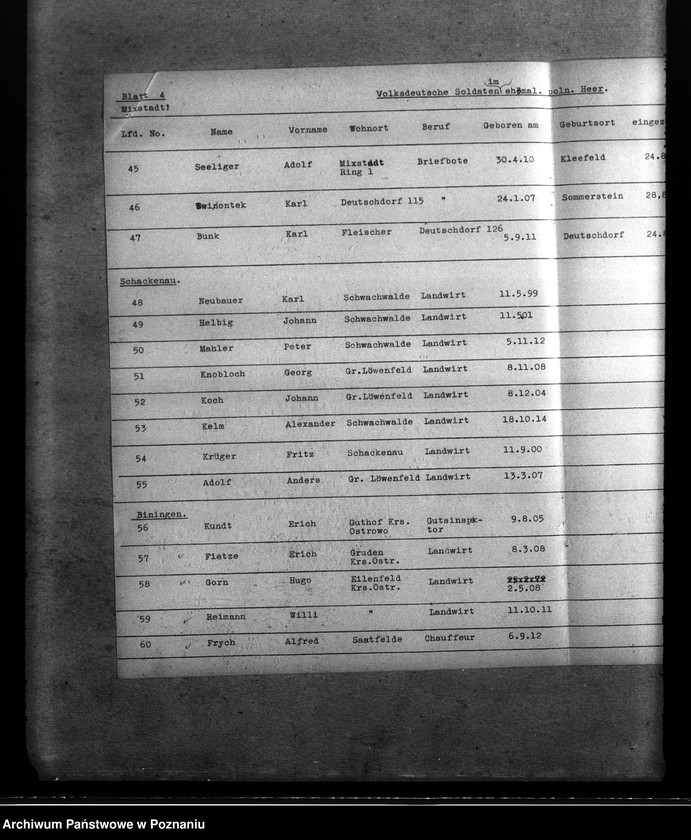 Blatt 4
im
Volksdeutsche Soldaten ehemal. poln. Heer.
Mixstadt!
Lfd. No. Name Vorname Wohnort Beruf Geboren am Geburtsort einge
45 Seeliger Adolf Mixstadt Briefbote 30.4.10 Kleefeld 24.
Ring 1
46 Swinontek Karl Deutschdorf 115 " 24.1.07 Sommerstein 28,
47 Bunk Karl Fleischer Deutschdorf 126 5.9.11 Deutschdorf 24.
Schackenau.
48 Neubauer Karl Schwachwalde Landwirt 11.5.99
49 Helbig Johann Schwachwalde Landwirt 11.501
50 Mahler Peter Schwachwalde Landwirt 5.11.12
51 Knobloch Georg Gr.Löwenfeld Landwirt 8.11.08
52 Koch Johann Gr.Löwenfeld Landwirt 8.12.04
53 Kelm Alexander Schwachwalde Landwirt 18.10.14
54 Krüger Fritz Schackenau Landwirt 11.9.00
55 Adolf Anders Gr. Löwenfeld Landwirt 13.3.07
Biningen.
56 Kundt Erich Guthof Krs. Gutsinspk- 9.8.05
Ostrowo tor
57 Fietze Erich Gruden Landwirt 8.3.08
Krs.Ostr.
58 Gorn Hugo Eilenfeld Landwirt
Krs.Ostr. 2.5.08
59 Reimann Willi " Landwirt 11.10.11
60 Frych Alfred Saatfelde Chauffeur 6.9.12
Archiwum Państwowe w Poznaniu